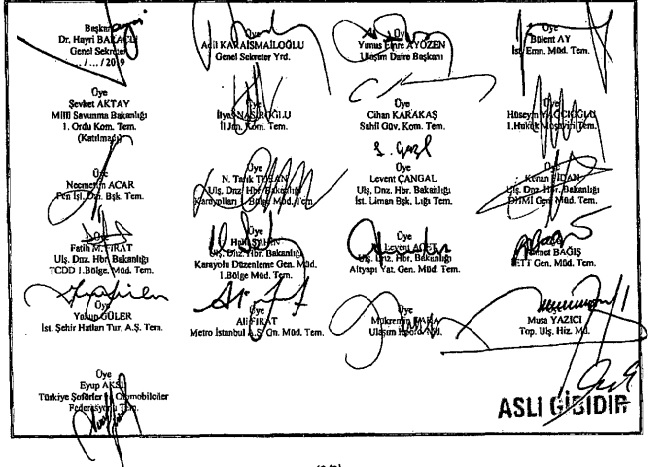 Başkan
Dr. Hayri
Genel Sekreter
... /... / 2019
Üye
Adil KARAİSMAİLOĞLU
Genel Sekreter Yrd.
Üye
Yunus Emre AYÖZEN
Ulaşım Daire Başkanı
Üye
Bülent AY
İst. Emn. Müd. Tem.
Üye
Şevket AKTAY
Milli Savunma Bakanlığı
1. Ordu Kom. Tem.
(Katılmadı)
Üye
İl Jan. Kom. Tem.
Üye
Cihan KARAKAŞ
Sahil Güv. Kom. Tem.
Üye
Hüseyin
1.Hukuk Müşaviri Tem.
Üye
Necmettin ACAR
Fen İşl. Dr. Bşk Tem.
Üye
N. Tarık
Ulş. Dnz. Hbr. Bakanlığı
Karayolları 1.Bölge Müd. Tem.
Üye
Levent ÇANGAL
Ulş. Dnz. Hbr. Bakanlığı
İst. Liman Bşk. Lığı Tem.
Üye
Kenan FİDAN
Ulş. Dnz. Hbr. Bakanlığı
DHMİ Gen. Müd. Tem.
Üye
Fatih M. FIRAT
Ulş. Dnz. Hbr. Bakanlığı
TCDD 1.Bölge. Müd. Tem.
Üye
Ulş. Dnz. Hbr. Bakanlığı
Karayolu Düzenleme Gen. Müd.
1.Bölge Müd. Tem.
Üye
Levent
Ulş. Dnz. Hbr. Bakanlığı
Altyapı Yat. Gen. Müd Tem.
BAĞIŞ
İETT Gen. Müd. Tem.
Üye
Yakup GÜLER
İst. Şehir Hatları Tur. A.Ş. Tem.
Üye
Ali FIRAT
Metro İstanbul A.Ş. Gn. Müd. Tem.
Üye
Mükremin KARA
Ulaşım Koord. Md.
Üye
Musa YAZICI
Top. Ulş. Hiz. Md.
Üye
Eyup AKSU
Türkiye Şoförler ve Otomobilciler
Federasyonu Tem.
ASLI GİBİDİR